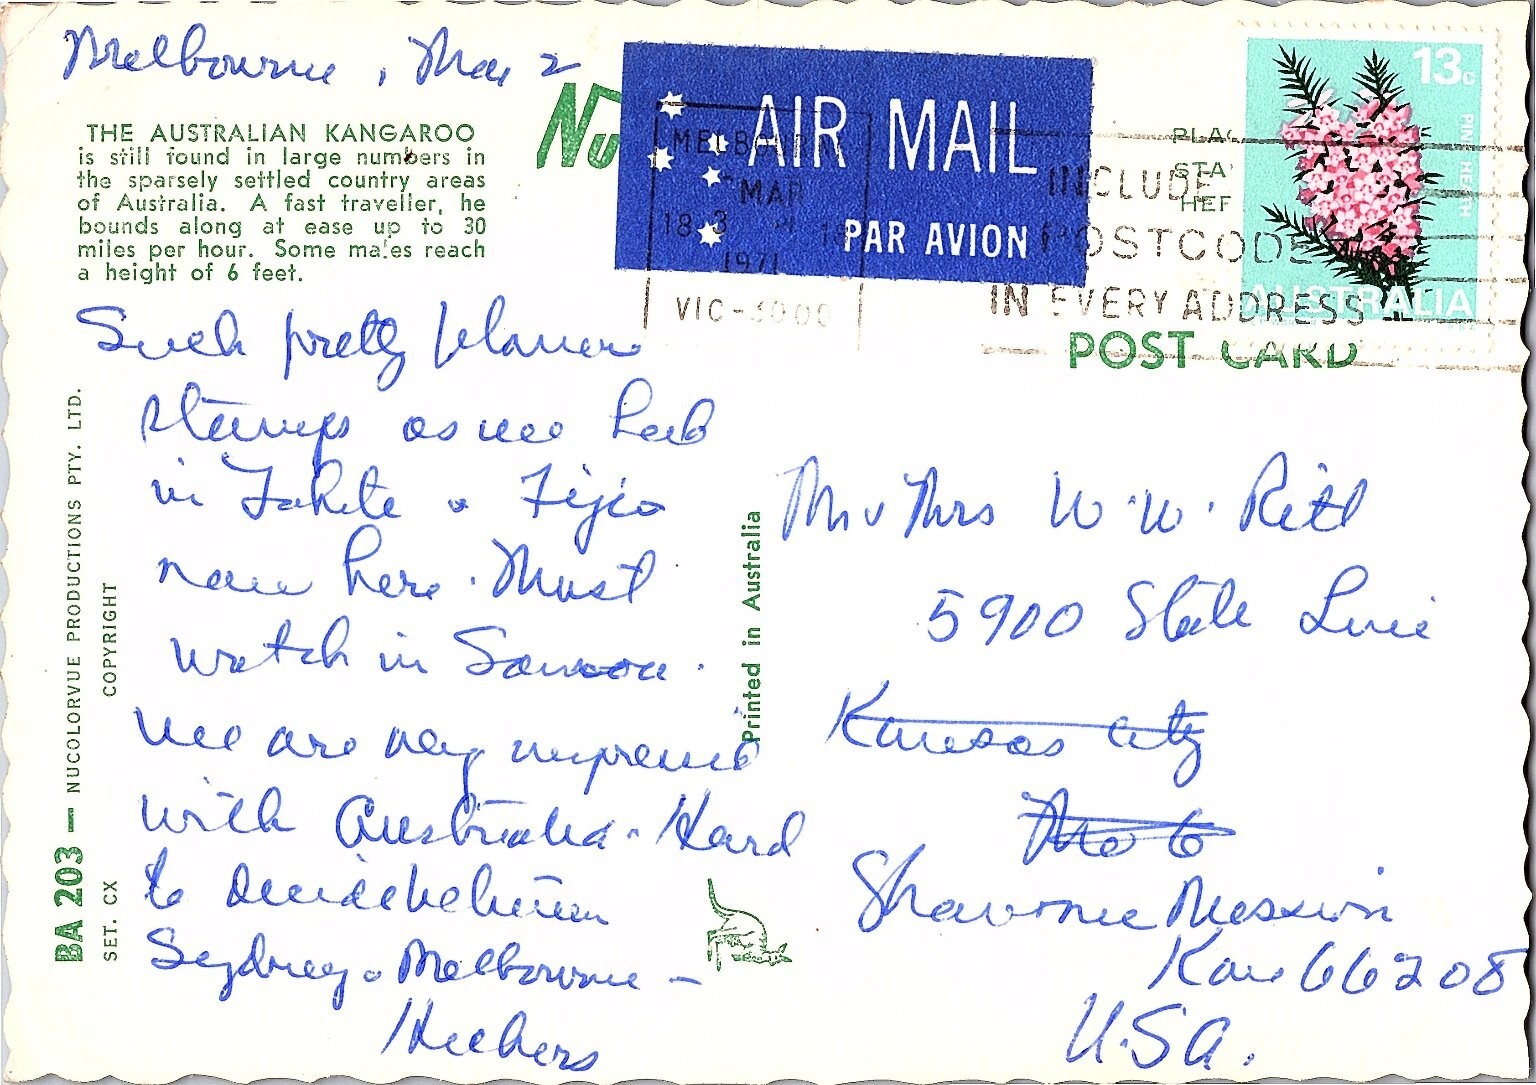 Melbourne, Mar 2
THE AUSTRALIAN KANGAROO
is still found in large numbers in
the sparsely settled country areas
of Australia. A fast traveller, he
bounds along at ease up to 30
miles per hour. Some males reach
a height of 6 feet.
Nu
AIR MAIL
PAR AVION
MELBOURNE
2 MAR
1971
VIC-3000
INCLUDE
POSTCODE
IN EVERY ADDRESS
PLAC
STA
HER
13c
PINK HEATH
AUSTRALIA
POST CARD
Such pretty flower
stamps as we had
in Tahite & Fijis
now here. Must
watch in Samoa.
We are very impressed
with Australia. Hard
to decide between
Sydney & Melbourne -
BA 203 — NUCOLORVUE PRODUCTIONS PTY. LTD.
SET. CX COPYRIGHT
Printed in Australia
Mr & Mrs W. W. Ritt
5900 State Line
Kansas City
Mo 6
Shawnee Mission
Kan 66208
U.S.A.